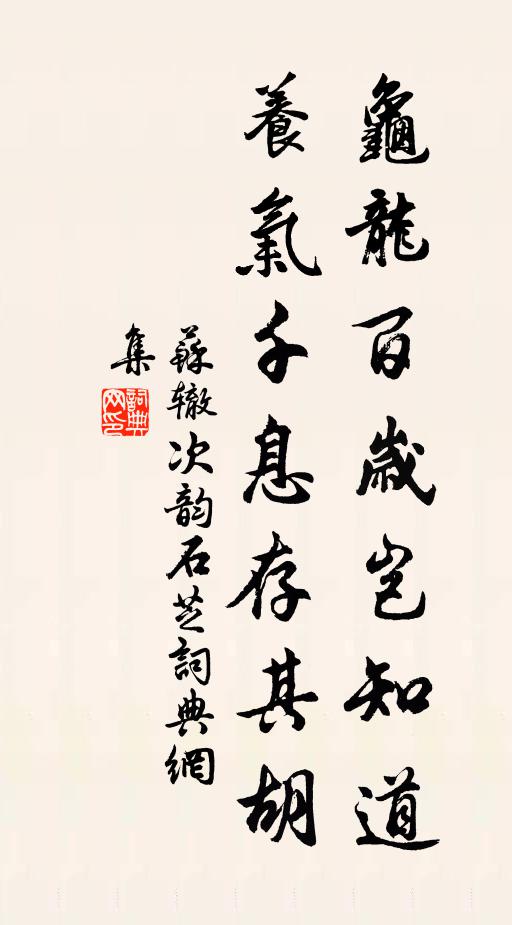 龜龍百歲豈知道
養氣千息存其胡
蘇辙次韵石芝詞典網
集
詞典网印